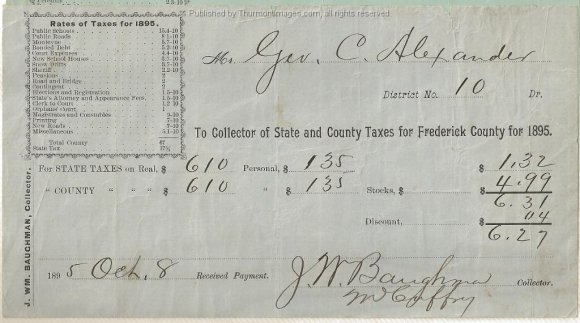 © Published by Thurmontimages.com, all rights reserved.
Rates of Taxes for 1895.
Public Schools 15.4-10
Public Roads 8.1-10
Montevue 5.7-10
Bonded Debt 5.2-10
Court Expenses 4.4-10
New School Houses 5.7-10
Snow Drifts 5.7-10
Sheriff 2.2-10
Pensions 2
Road and Bridge 2
Contingent 2
Elections and Registration 1.5-10
State's Attorney and Appearance Fees, 1.5-10
Clerk to Court 1.2-10
Orphans' Court
Magistrates and Constables 9-10
Printing 7-10
New Roads 7-10
Miscellaneous 5.1-10
Total County 67
State Tax 17¾
Mr. Geo. C. Alexander
District No. 10 Dr.
To Collector of State and County Taxes for Frederick County for 1895.
For STATE TAXES on Real, $ 610 Personal, $ 135 $ 1.32
" COUNTY " " " $ 610 " $ 135 Stocks, $ 4.99
6.31
Discount, $ 04
6.27
1895 Oct. 8 Received Payment. J. W. Baughman Collector.
McCaffry
J. WM. BAUGHMAN, Collector.